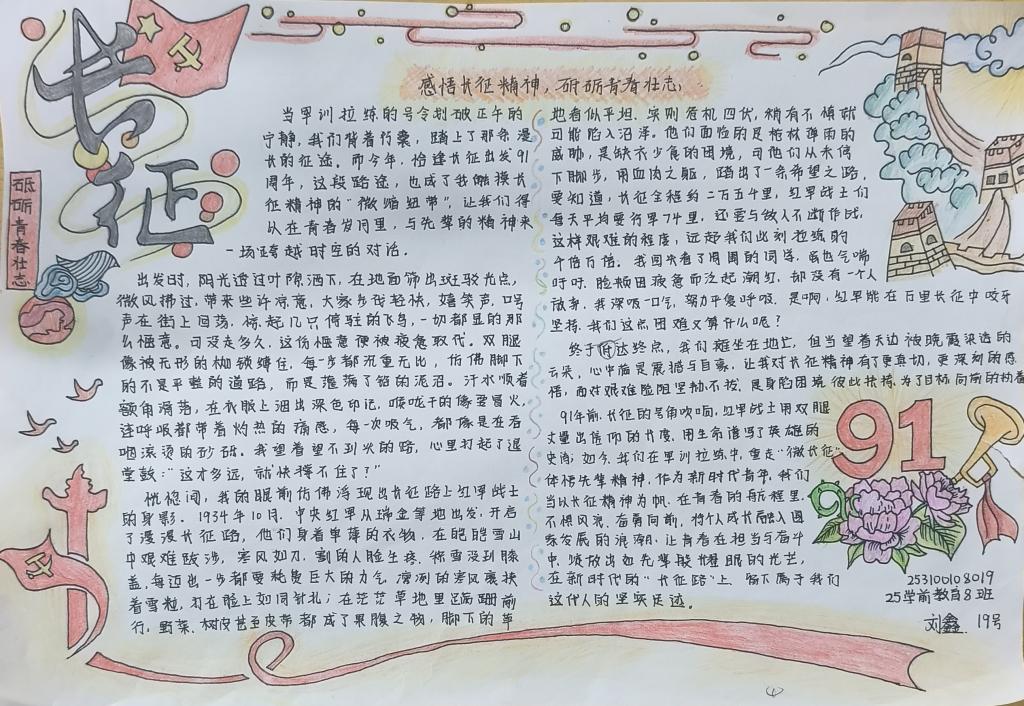 长征
砥砺青春壮志
感悟长征精神，砥砺青春壮志
当军训拉练的号令划破正午的
宁静，我们背着行囊，踏上了那条漫
长的征途。而今年，恰逢长征出发91
周年，这段路途，也成了我触摸长
征精神的"微缩纽带"，让我们得
以在青春岁月里，与先辈的精神来
一场跨越时空的对话。
出发时，阳光透过叶隙洒下，在地面筛出斑驳光点，
微风拂过，带来些许凉意，大家步伐轻快，嬉笑声、口号
声在街上回荡，惊起几只停驻的飞鸟，一切都显的那
么惬意。可没走多久，这份惬意便被疲惫取代。双腿
像被无形的枷锁缚住，每一步都沉重无比，仿佛脚下
的不是平整的道路，而是灌满了铅的泥沼。汗水顺着
额角滑落，在衣服上洇出深色印记，喉咙干的像要冒火，
连呼吸都带着灼热的痛感，每一次吸气，都像是在吞
咽滚烫的砂砾。我望着望不到头的路，心里打起了退
堂鼓："这才多远，就快撑不住了？"
恍惚间，我的眼前仿佛浮现出长征路上红军战士
的身影。1934年10月，中央红军从瑞金等地出发，开启
了漫漫长征路，他们身着单薄的衣物，在皑皑雪山
中艰难跋涉，寒风如刀，割的人脸生疼，积雪没到膝
盖，每迈出一步都要耗费巨大的力气，凛冽的寒风裹挟
着雪粒，打在脸上如同针扎；在茫茫草地里蹒跚前
行，野菜、树皮甚至皮带都成了果腹之物，脚下的草
地看似平坦，实则危机四伏，稍有不慎就
可能陷入沼泽。他们面临的是枪林弹雨的
威胁，是缺衣少食的困境，可他们从未停
下脚步，用血肉之躯，踏出了一条希望之路。
要知道，长征全程约二万五千里，红军战士们
每天平均要行军74里，还要与敌人不断作战，
这样艰难的程度，远超我们此刻拉练的
千倍万倍。我回头看了周围的同学，虽也气喘
吁吁，脸颊因疲惫而泛起潮红，却没有一个人
放弃，我深吸一口气，努力平复呼吸。是啊，红军能在万里长征中咬牙
坚持，我们这点困难又算什么呢？
终于到达终点，我们瘫坐在地上，但当望着天边被晚霞染透的
云朵，心中满是震撼与自豪，让我对长征精神有了更真切，更深刻的感
悟，面对艰难险阻坚韧不拔，是身陷困境彼此扶持，为了目标向前的执着
91年前，长征的号角吹响，红军战士用双腿
丈量出信仰的长度，用生命谱写了英雄的
史诗；如今，我们在军训拉练中，重走"微长征"
体悟先辈精神，作为新时代青年，我们
当以长征精神为帆，在青春的航程里，
不惧风浪，奋勇向前，将个人成长融入国
家发展的浪潮，让青春在担当与奋斗
中，绽放出如先辈般耀眼的光芒，
在新时代的"长征路"上，留下属于我们
这代人的坚实足迹。
91
253100108019
25学前教育8班
刘鑫 19号